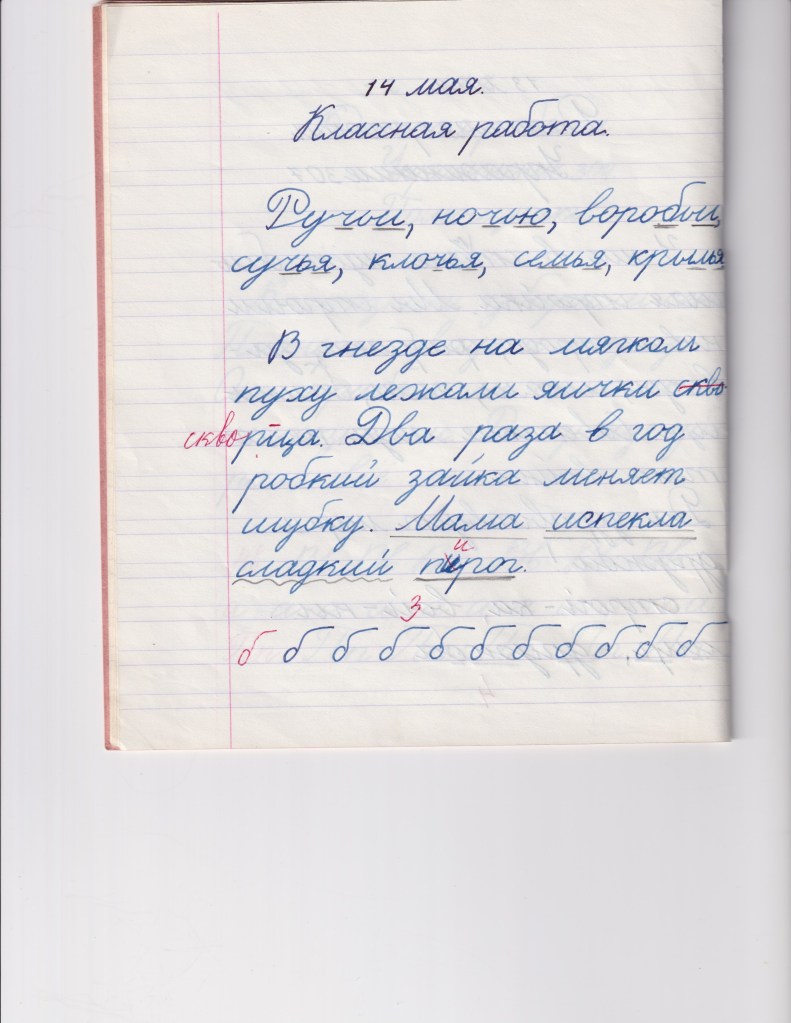 14 мая.
Классная работа.
Ручьи, ночью, воробьи,
сучья, клочья, семья, крылья
В гнезде на мягком
пуху лежали яички скво
скворца. Два раза в год
робкий зайка меняет
шубку. Мама испекла
и
сладкий пирог.
3
б б б б б б б б б б б